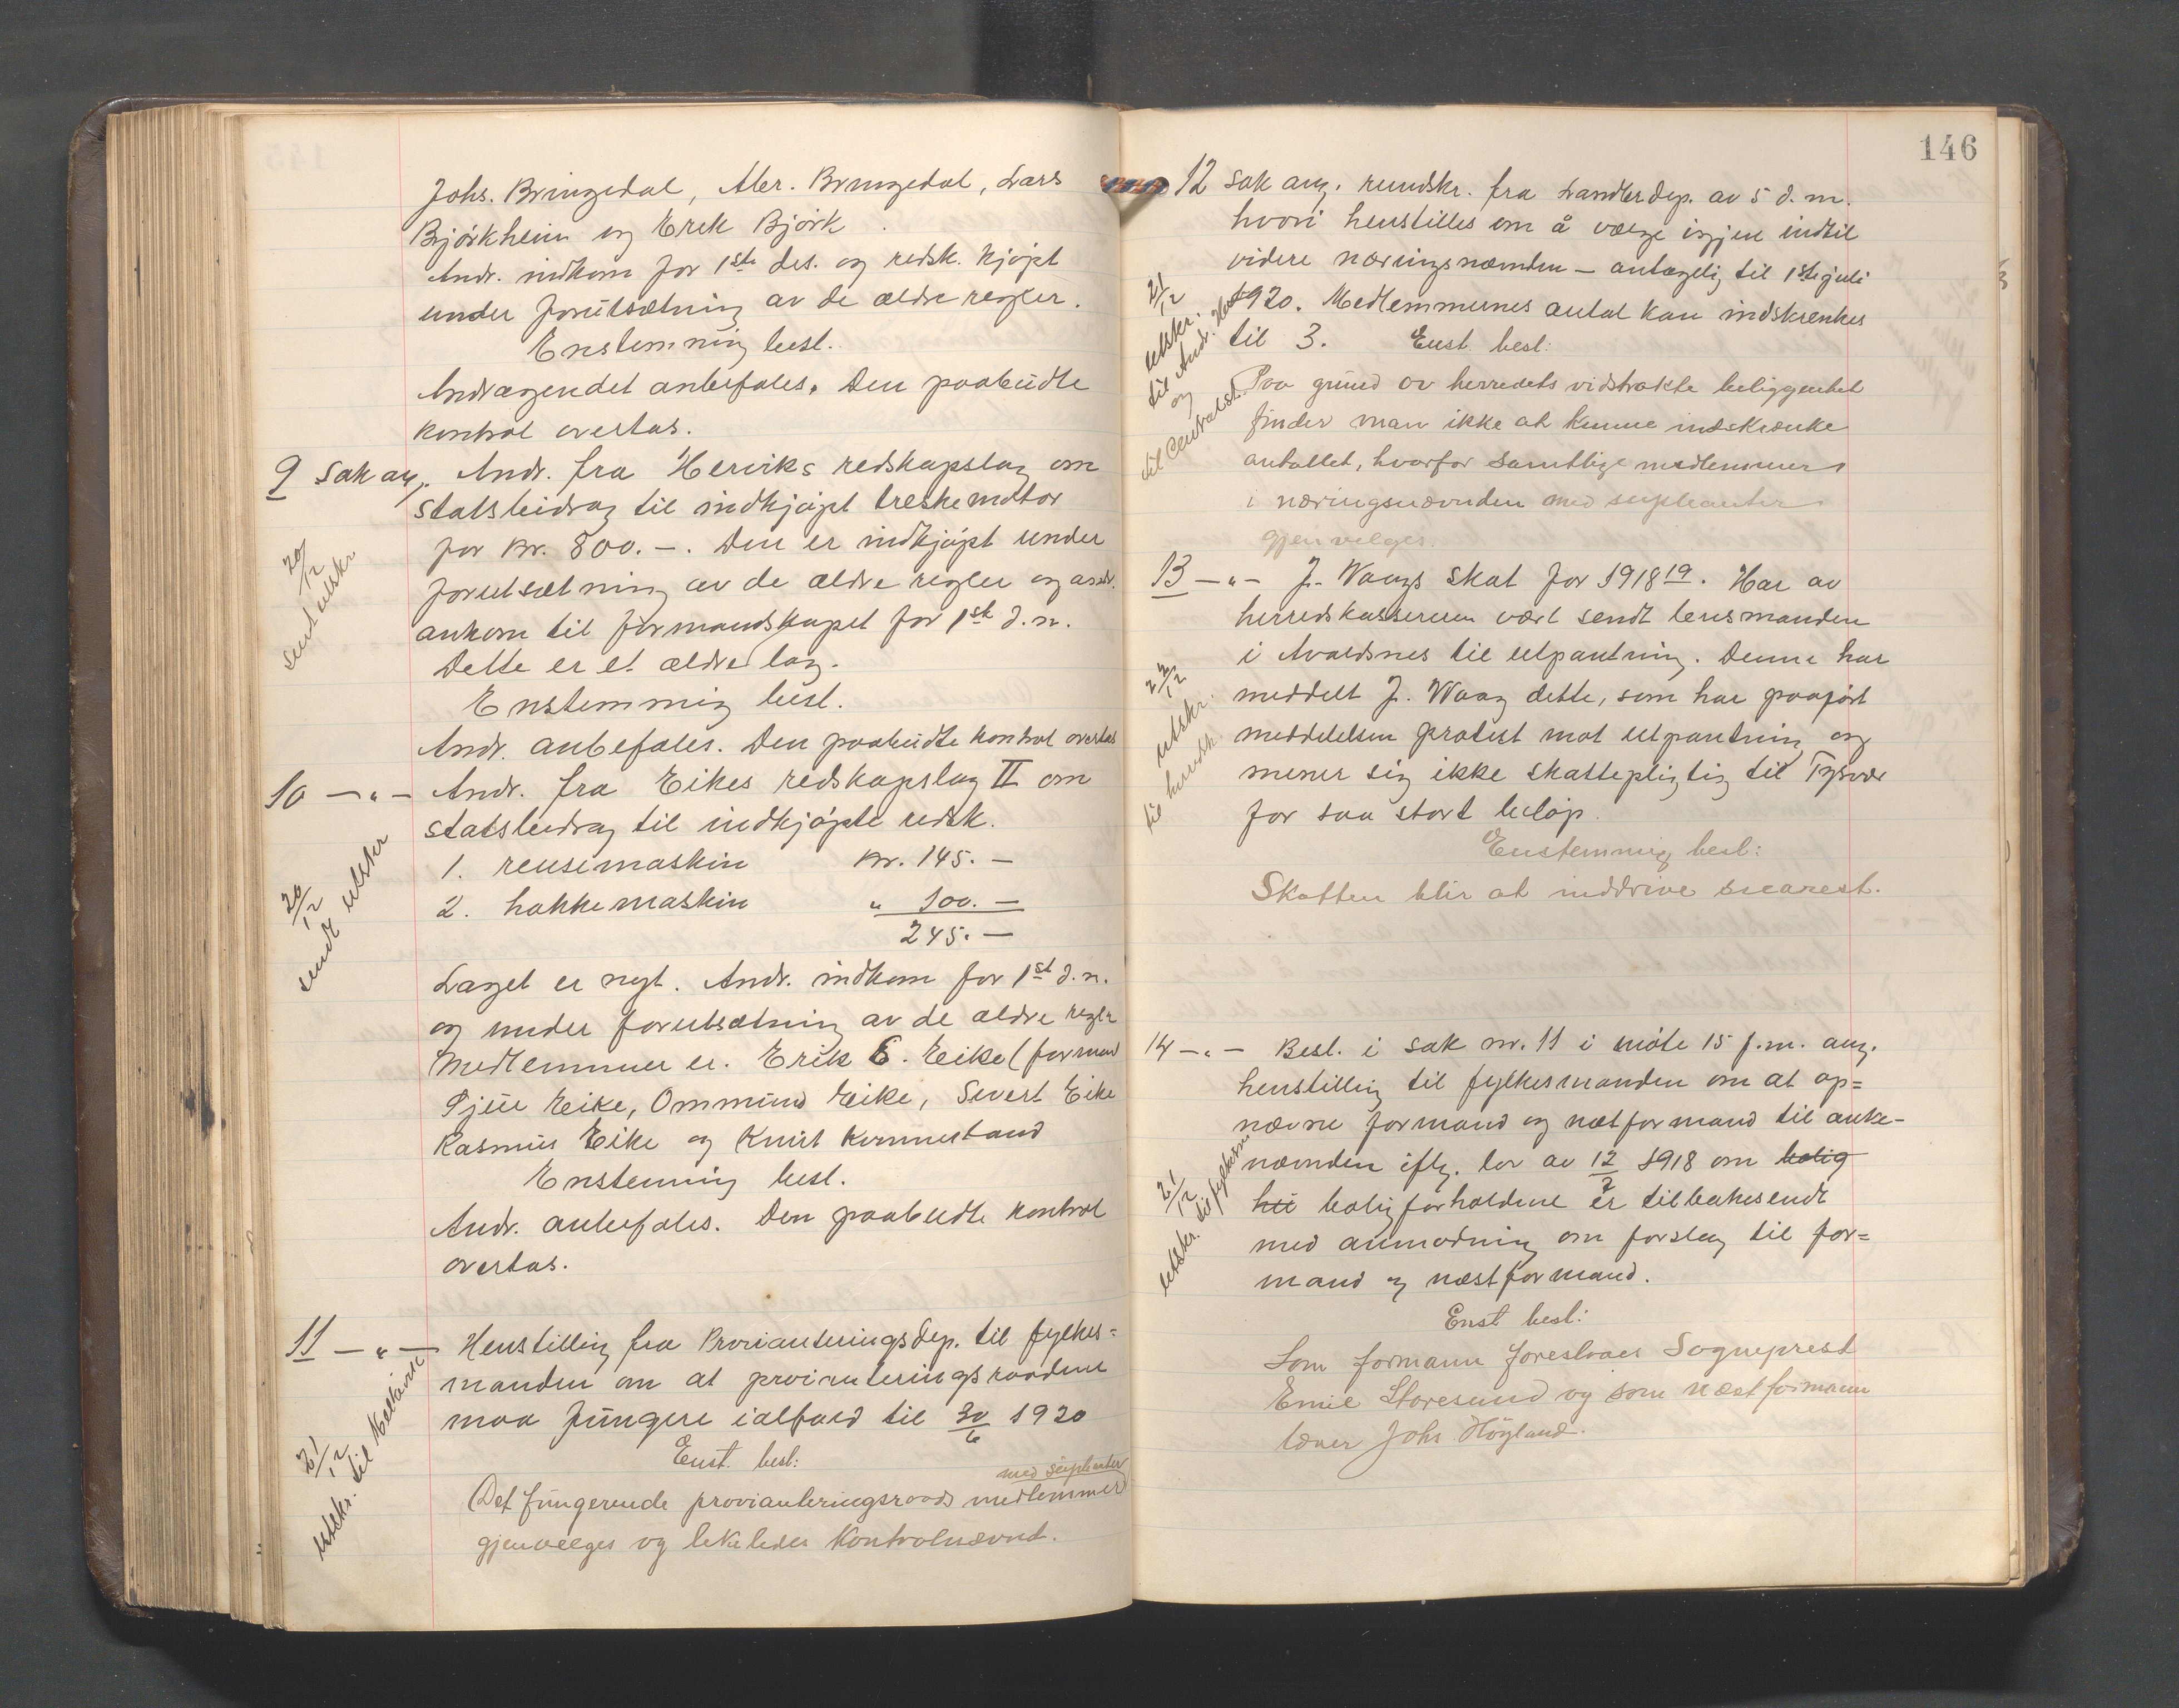 Johs. Bringedal, Abr. Bringedal, Lars
Björkheim og Erek Björk.
Andr. indkom for 1ste des. og redsk. kjøpt
under forutsætning av de ældre regler.
Enstemmig besl.
Andragendet anbefales. Den paabudte
kontrol overtas.
9 Sak ang. Andr. fra Herviks redskapslag om
statsbidrag til indkjøpt treskemotor
for kr. 800.-. Den er indkjøpt under
20/12 sendt utskr.
forutsætning av de ældre regler og andr.
ankom til formandskapet for 1st d.m.
Dette er et ældre lag.
Enstemmig besl.
Andr. anbefales. Den paabudte kontrol overtas
10 -"- Andr. fra Eikes redskapslag II om
statsbidrag til indkjøpte redsk.
1. rensemaskin kr. 145.-
2. hakkemaskin " 100.-
245.-
20/12 sendt utskr
Laget er nyt. Andr. indkom for 1st d.m.
og under forutsætning av de ældre regler
Medlemmer er. Erik E. Eike (formand
Eike, Ommund Eike, Sivert Eike
Rasmus Eike og Knut
Enstemmig besl.
Andr. anbefales. Den paabudte kontrol
overtas.
11 -"- Henstilling fra Provianteringsdep. til fylkes=
manden om at provianteringsraadene
maa fungere ialfald til 30/6 1920
21/12 utskr. til
Enst. besl:
med supleanter
Det fungerende provianteringsraads medlemmer
gjenvælges og likeledes Kontrolnævnd.
146
12 Sak ang. rundskr. fra Landbr.dep. av 5 d.m.
hvori henstilles om å vælge igjen indtil
videre næringsnævnden - antagelig til 1ste juli
1920. Medlemmernes antal kan indskrenkes
til 3. Enst. besl:
21/12 utskr. til Andr.
og til Centralst.
Paa grund av herredets vidstrakte beliggenhet
finder man ikke at kunne indskrænke
antallet, hvorfor samtlige medlemmer
i næringsnævnden med supleanter
gjenvelges.
13 -"- J. Waags skat for 1918 19. Har av
herredskassereren vært sendt lensmanden
i Avaldsnes til utpantning. Denne har
22/12 utskr. til herredsk.
meddelt J. Waag dette, som har paaført
meddelelsen protest mot utpantning og
mener sig ikke skattepligtig til Tysvær
for saa stort beløp.
Enstemmig besl:
Skatten blir at inddrive snarest.
14 -"- Besl. i sak nr. 11 i møte 15 f.m. ang.
henstilling til fylkesmanden om at op=
nævne formand og næstformand til anke-
nævnden iflg. lov av 12/7 1918 om bolig
21/12 utskr. til fylkesm.
boligforholdene er tilbakesendt
med anmodning om forslag til for=
mand og næstformand.
Enst besl:
Som formann foreslaaes Sogneprest
Emil Storesund og som næstformann
lærer Johs Höyland.